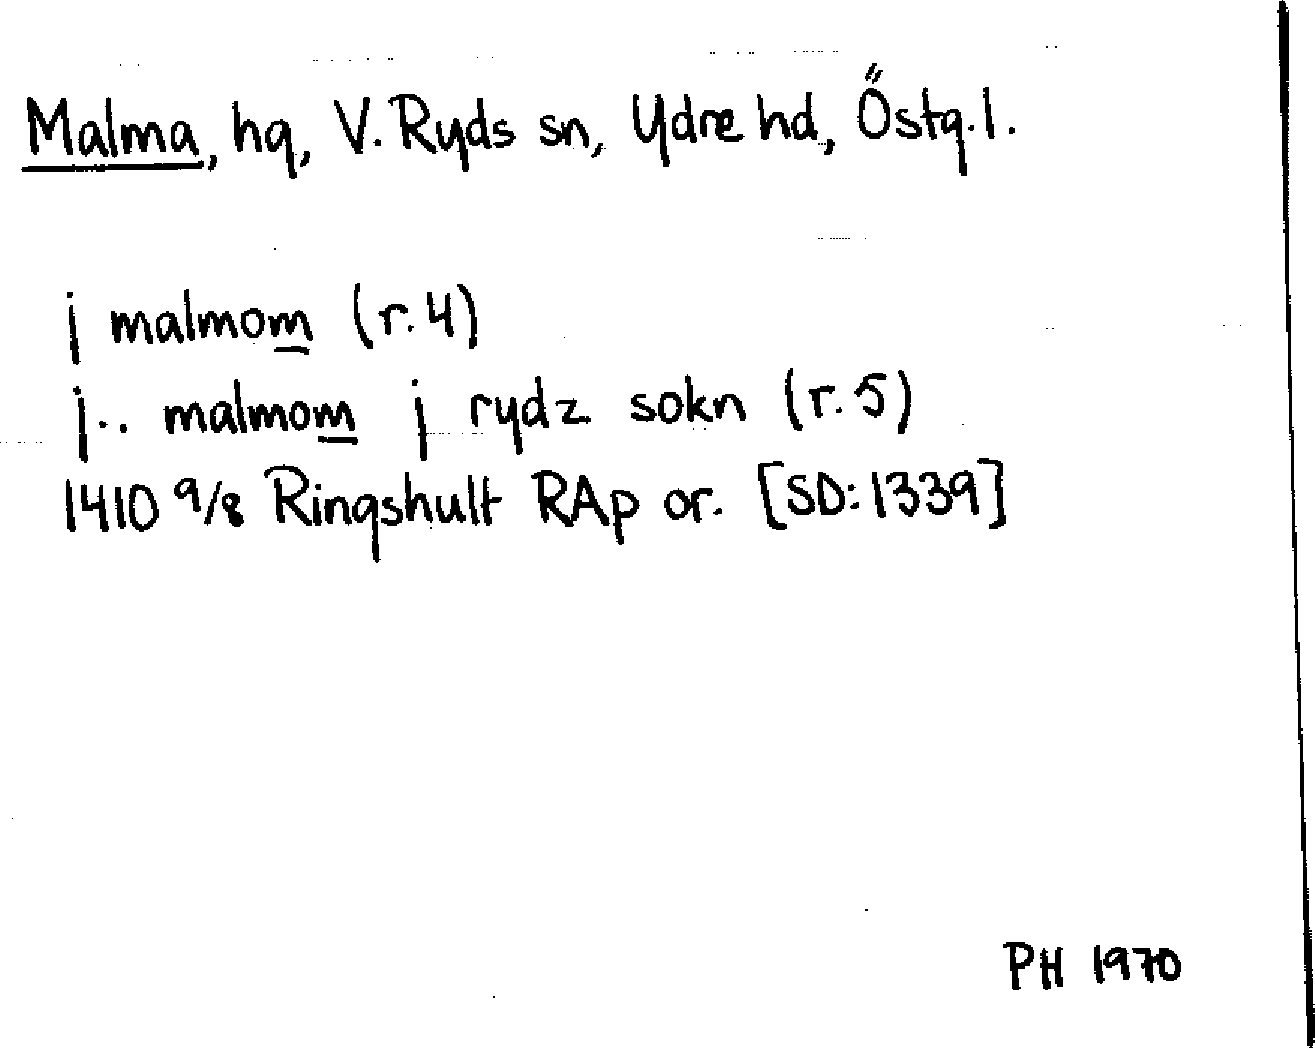 Malma, hg, V. Ryds sn, Ydre hd, Östg.l.
j malmom (r.4)
j.. malmom j rydz sokn (r.5)
1410 9/8 Ringshult RAp or. [SD:1339]
PH 1970